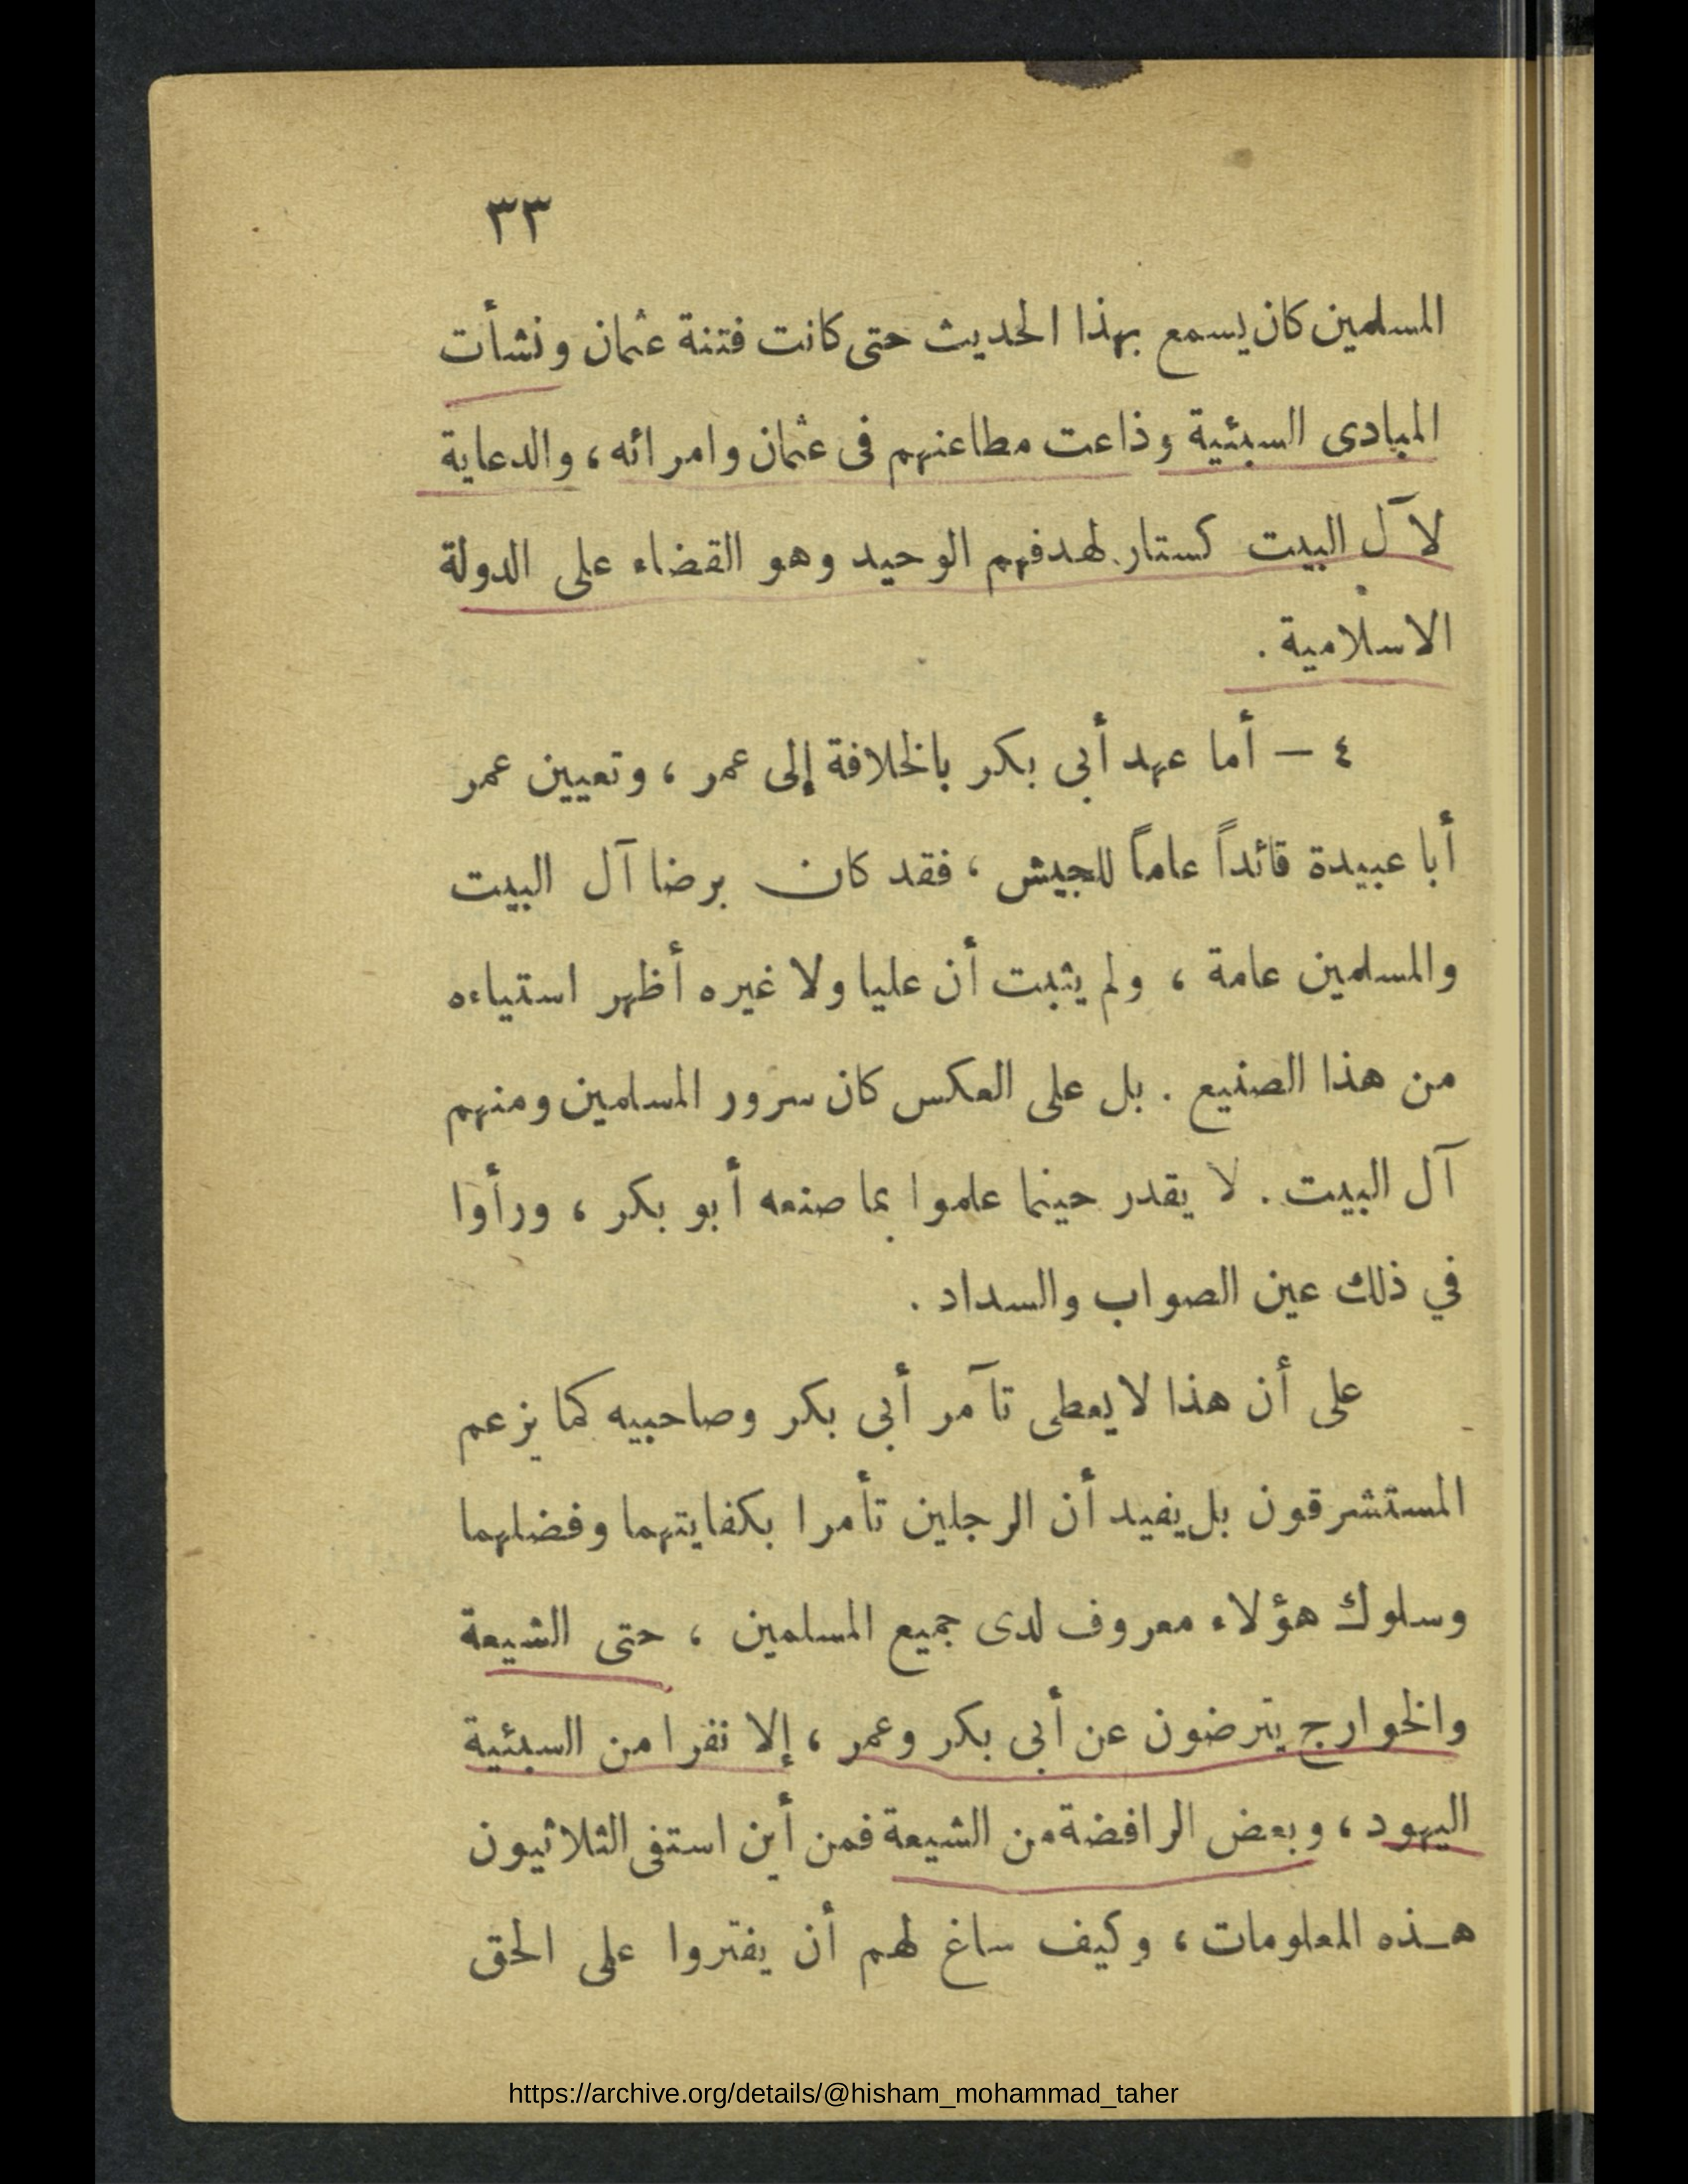 ٣٣
المسلمين كان يسمع بهذا الحديث حتى كانت فتنة عثمان ونشأت
المبادى السبئية وذاعت مطاعنهم فى عثمان وامرائه ، والدعاية
لآل البيت كستار لهدفهم الوحيد وهو القضاء على الدولة
الاسلامية .
٤ — أما عهد أبى بكر بالخلافة إلى عمر ، وتعيين عمر
أبا عبيدة قائداً عاماً للجيش ، فقد كان برضا آل البيت
والمسلمين عامة ، ولم يثبت أن عليا ولا غيره أظهر استياءه
من هذا الصنيع . بل على العكس كان سرور المسلمين ومنهم
آل البيت . لا يقدر حينما علموا بما صنعه أبو بكر ، ورأوا
في ذلك عين الصواب والسداد .
على أن هذا لا يعطى تآمر أبى بكر وصاحبيه كما يزعم
المستشرقون بل يفيد أن الرجلين تأمرا بكفايتهما وفضلهما
وسلوك هؤلاء معروف لدى جميع المسلمين ، حتى الشيعة
والخوارج يترضون عن أبى بكر وعمر ، إلا نفرا من السبئية
اليهود ، وبعض الرافضة من الشيعة فمن أين استفى الثلاثيون
هـذه المعلومات ، وكيف ساغ لهم أن يفتروا على الحق
https://archive.org/details/@hisham_mohammad_taher